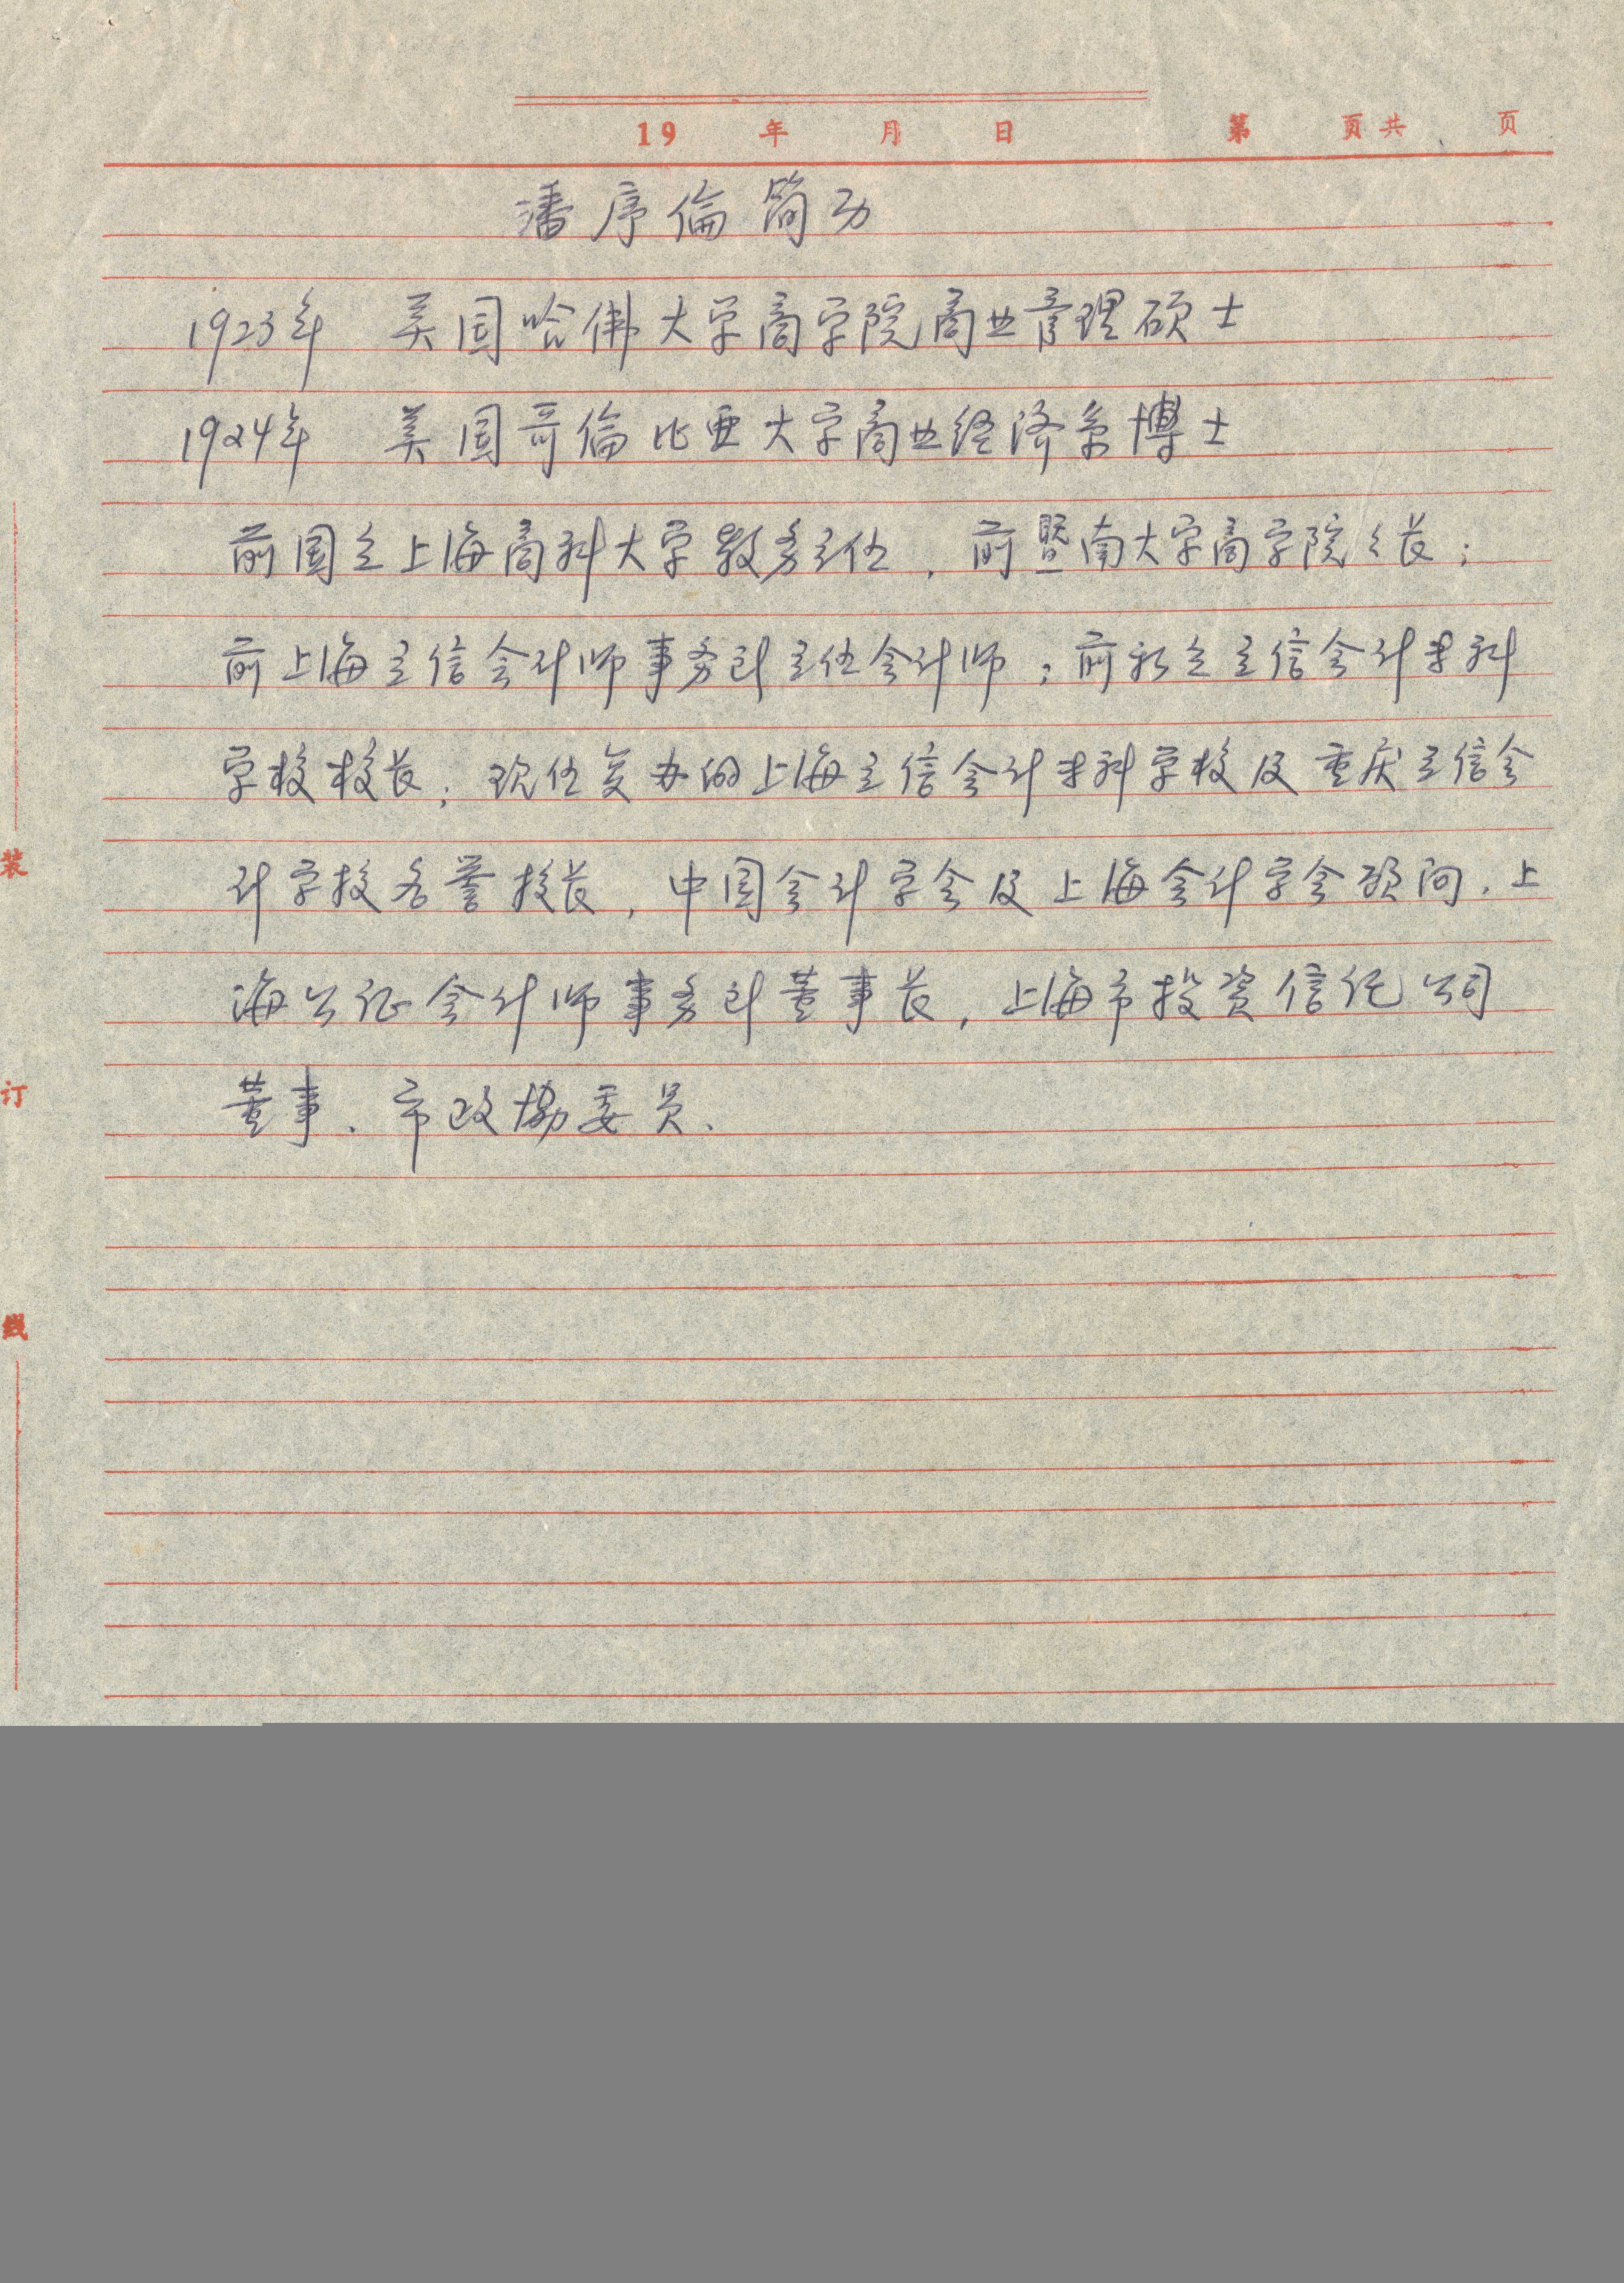 19 年 月 日 第 页共 页
潘序倫简历
1923年 美国哈佛大学商学院商业管理硕士
1924年 美国哥倫比亚大学商业经济系博士
前国立上海商科大学教务主任，前暨南大学商学院々长；
前上海立信会计师事务所主任会计师；前私立立信会计专科
学校校长；现任复办的上海立信会计专科学校及重庆立信会
计学校名誉校长，中国会计学会及上海会计学会顾问，上
海公证会计师事务所董事长，上海市投资信托公司
董事、市政协委员.
装
订
线